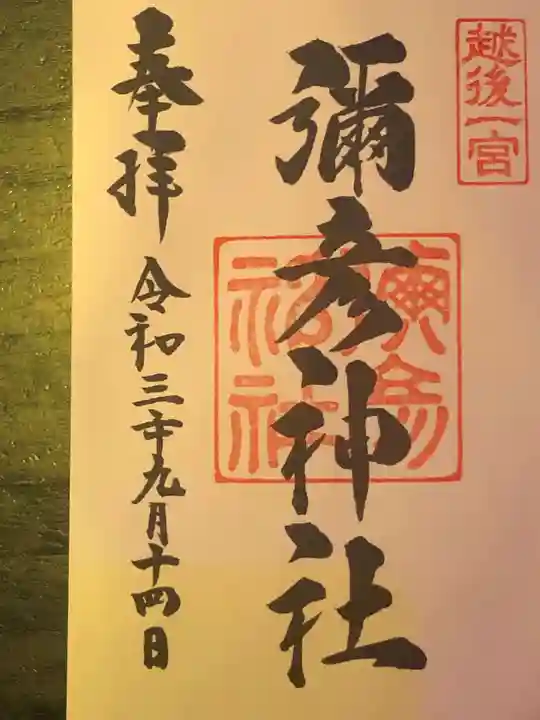 越後一宮
彌彦神社
彌彦神社
奉拝
令和三年九月十四日